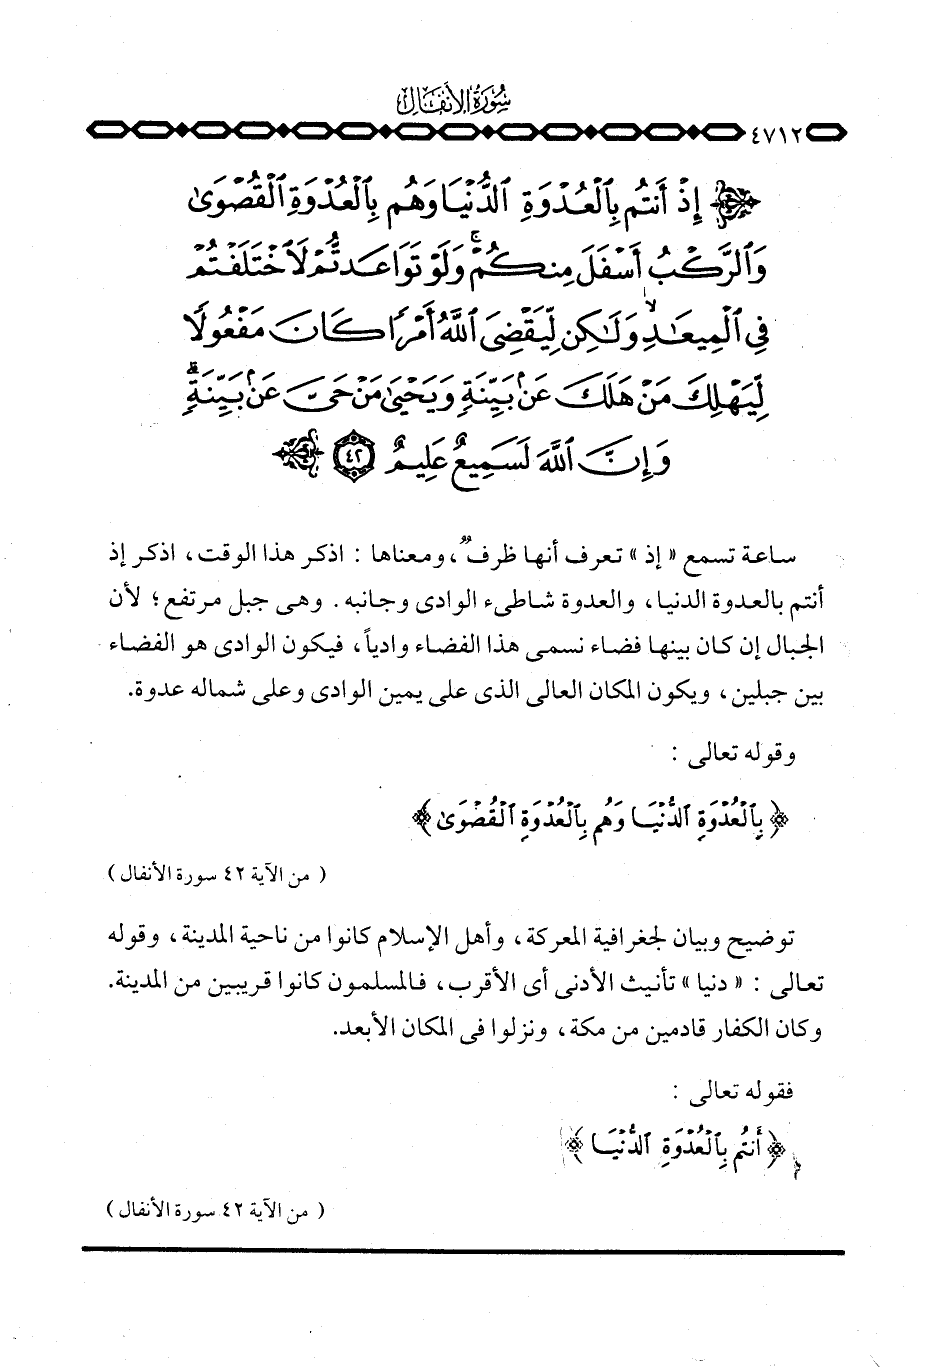 سُورَةُ الأَنفَالِ
٤٧١٢
إِذْ أَنتُم بِالْعُدْوَةِ الدُّنْيَا وَهُم بِالْعُدْوَةِ الْقُصْوَىٰ
وَالرَّكْبُ أَسْفَلَ مِنكُمْ ۚ وَلَوْ تَوَاعَدتُّمْ لَاخْتَلَفْتُمْ
فِي الْمِيعَادِ ۙ وَلَٰكِن لِّيَقْضِيَ اللَّهُ أَمْرًا كَانَ مَفْعُولًا
لِّيَهْلِكَ مَنْ هَلَكَ عَنۢ بَيِّنَةٍ وَيَحْيَىٰ مَنْ حَيَّ عَنۢ بَيِّنَةٍ ۗ
وَإِنَّ اللَّهَ لَسَمِيعٌ عَلِيمٌ ٤٢
ساعة تسمع « إذ » تعرف أنها ظرفٌ، ومعناها : اذكر هذا الوقت، اذكر إذ
أنتم بالعدوة الدنيا، والعدوة شاطىء الوادى وجانبه . وهى جبل مرتفع ؛ لأن
الجبال إن كان بينها فضاء نسمى هذا الفضاء وادياً، فيكون الوادى هو الفضاء
بين جبلين، ويكون المكان العالى الذى على يمين الوادى وعلى شماله عدوة.
وقوله تعالى :
﴿ بِالْعُدْوَةِ الدُّنْيَا وَهُم بِالْعُدْوَةِ الْقُصْوَىٰ ﴾
( من الآية ٤٢ سورة الأنفال )
توضيح وبيان لجغرافية المعركة، وأهل الإسلام كانوا من ناحية المدينة، وقوله
تعالى : « دنيا » تأنيث الأدنى أى الأقرب، فالمسلمون كانوا قريبين من المدينة.
وكان الكفار قادمين من مكة، ونزلوا فى المكان الأبعد.
فقوله تعالى :
﴿ أَنتُم بِالْعُدْوَةِ الدُّنْيَا ﴾
( من الآية ٤٢ سورة الأنفال )